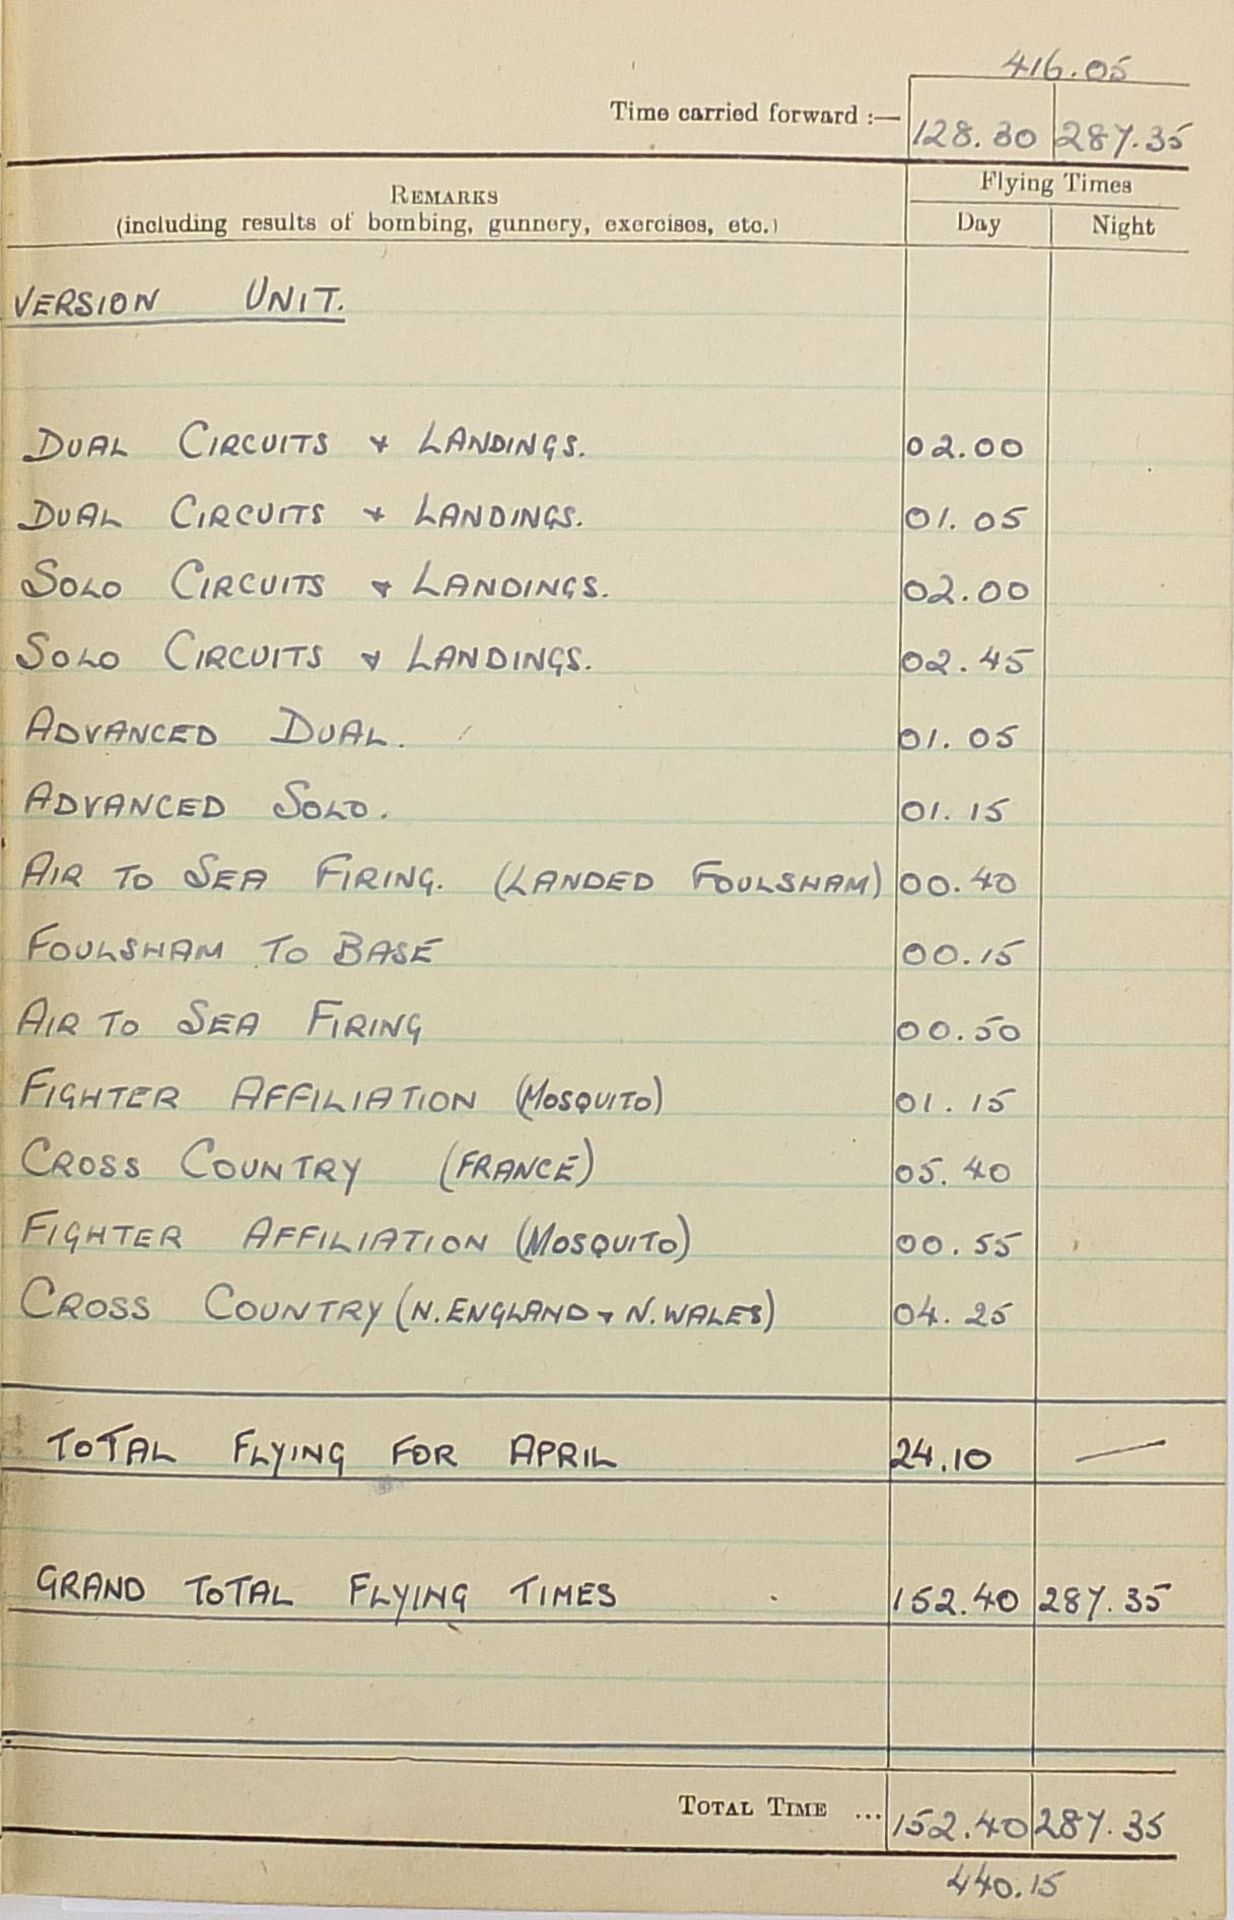 416.05
Time carried forward :— 128.30 287.35
REMARKS
(including results of bombing, gunnery, exercises, etc.)
Flying Times
Day Night
VERSION UNIT.
DUAL CIRCUITS & LANDINGS. 02.00
DUAL CIRCUITS & LANDINGS. 01.05
SOLO CIRCUITS & LANDINGS. 02.00
SOLO CIRCUITS & LANDINGS. 02.45
ADVANCED DUAL. 01.05
ADVANCED SOLO. 01.15
AIR TO SEA FIRING. (LANDED FOULSHAM) 00.40
FOULSHAM TO BASE 00.15
AIR TO SEA FIRING 00.50
FIGHTER AFFILIATION (MOSQUITO) 01.15
CROSS COUNTRY (FRANCE) 05.40
FIGHTER AFFILIATION (MOSQUITO) 00.55
CROSS COUNTRY (N. ENGLAND & N. WALES) 04.25
TOTAL FLYING FOR APRIL 24.10 —
GRAND TOTAL FLYING TIMES 152.40 287.35
TOTAL TIME ... 152.40 287.35
440.15